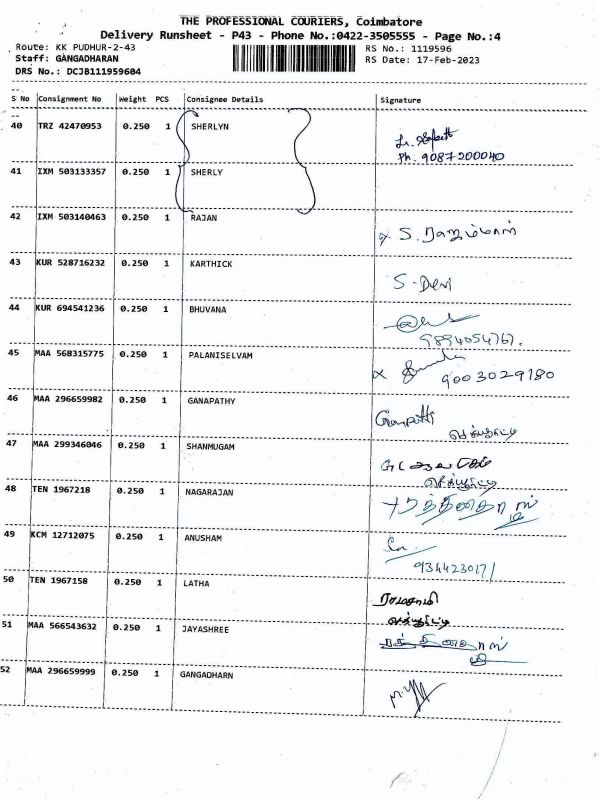 THE PROFESSIONAL COURIERS, Coimbatore
Delivery Runsheet - P43 - Phone No.:0422-3505555 - Page No.:4
Route: KK PUDHUR-2-43 RS No.: 1119596
Staff: GANGADHARAN RS Date: 17-Feb-2023
DRS No.: DCJB111959604
S No Consignment No Weight PCS Consignee Details Signature
40 TRZ 42470953 0.250 1 SHERLYN
Ph. 9087200040
41 IXM 503133357 0.250 1 SHERLY
42 IXM 503140463 0.250 1 RAJAN
x S. ராஜம்மாள்
43 KUR 528716232 0.250 1 KARTHICK
S. Devi
44 KUR 694541236 0.250 1 BHUVANA
9894054767.
45 MAA 568315775 0.250 1 PALANISELVAM
x 9003029180
46 MAA 296659982 0.250 1 GANAPATHY
47 MAA 299346046 0.250 1 SHANMUGAM
48 TEN 1967218 0.250 1 NAGARAJAN
49 KCM 12712075 0.250 1 ANUSHAM
9344230171
50 TEN 1967158 0.250 1 LATHA
ராமசாமி
51 MAA 566543632 0.250 1 JAYASHREE
52 MAA 296659999 0.250 1 GANGADHARN